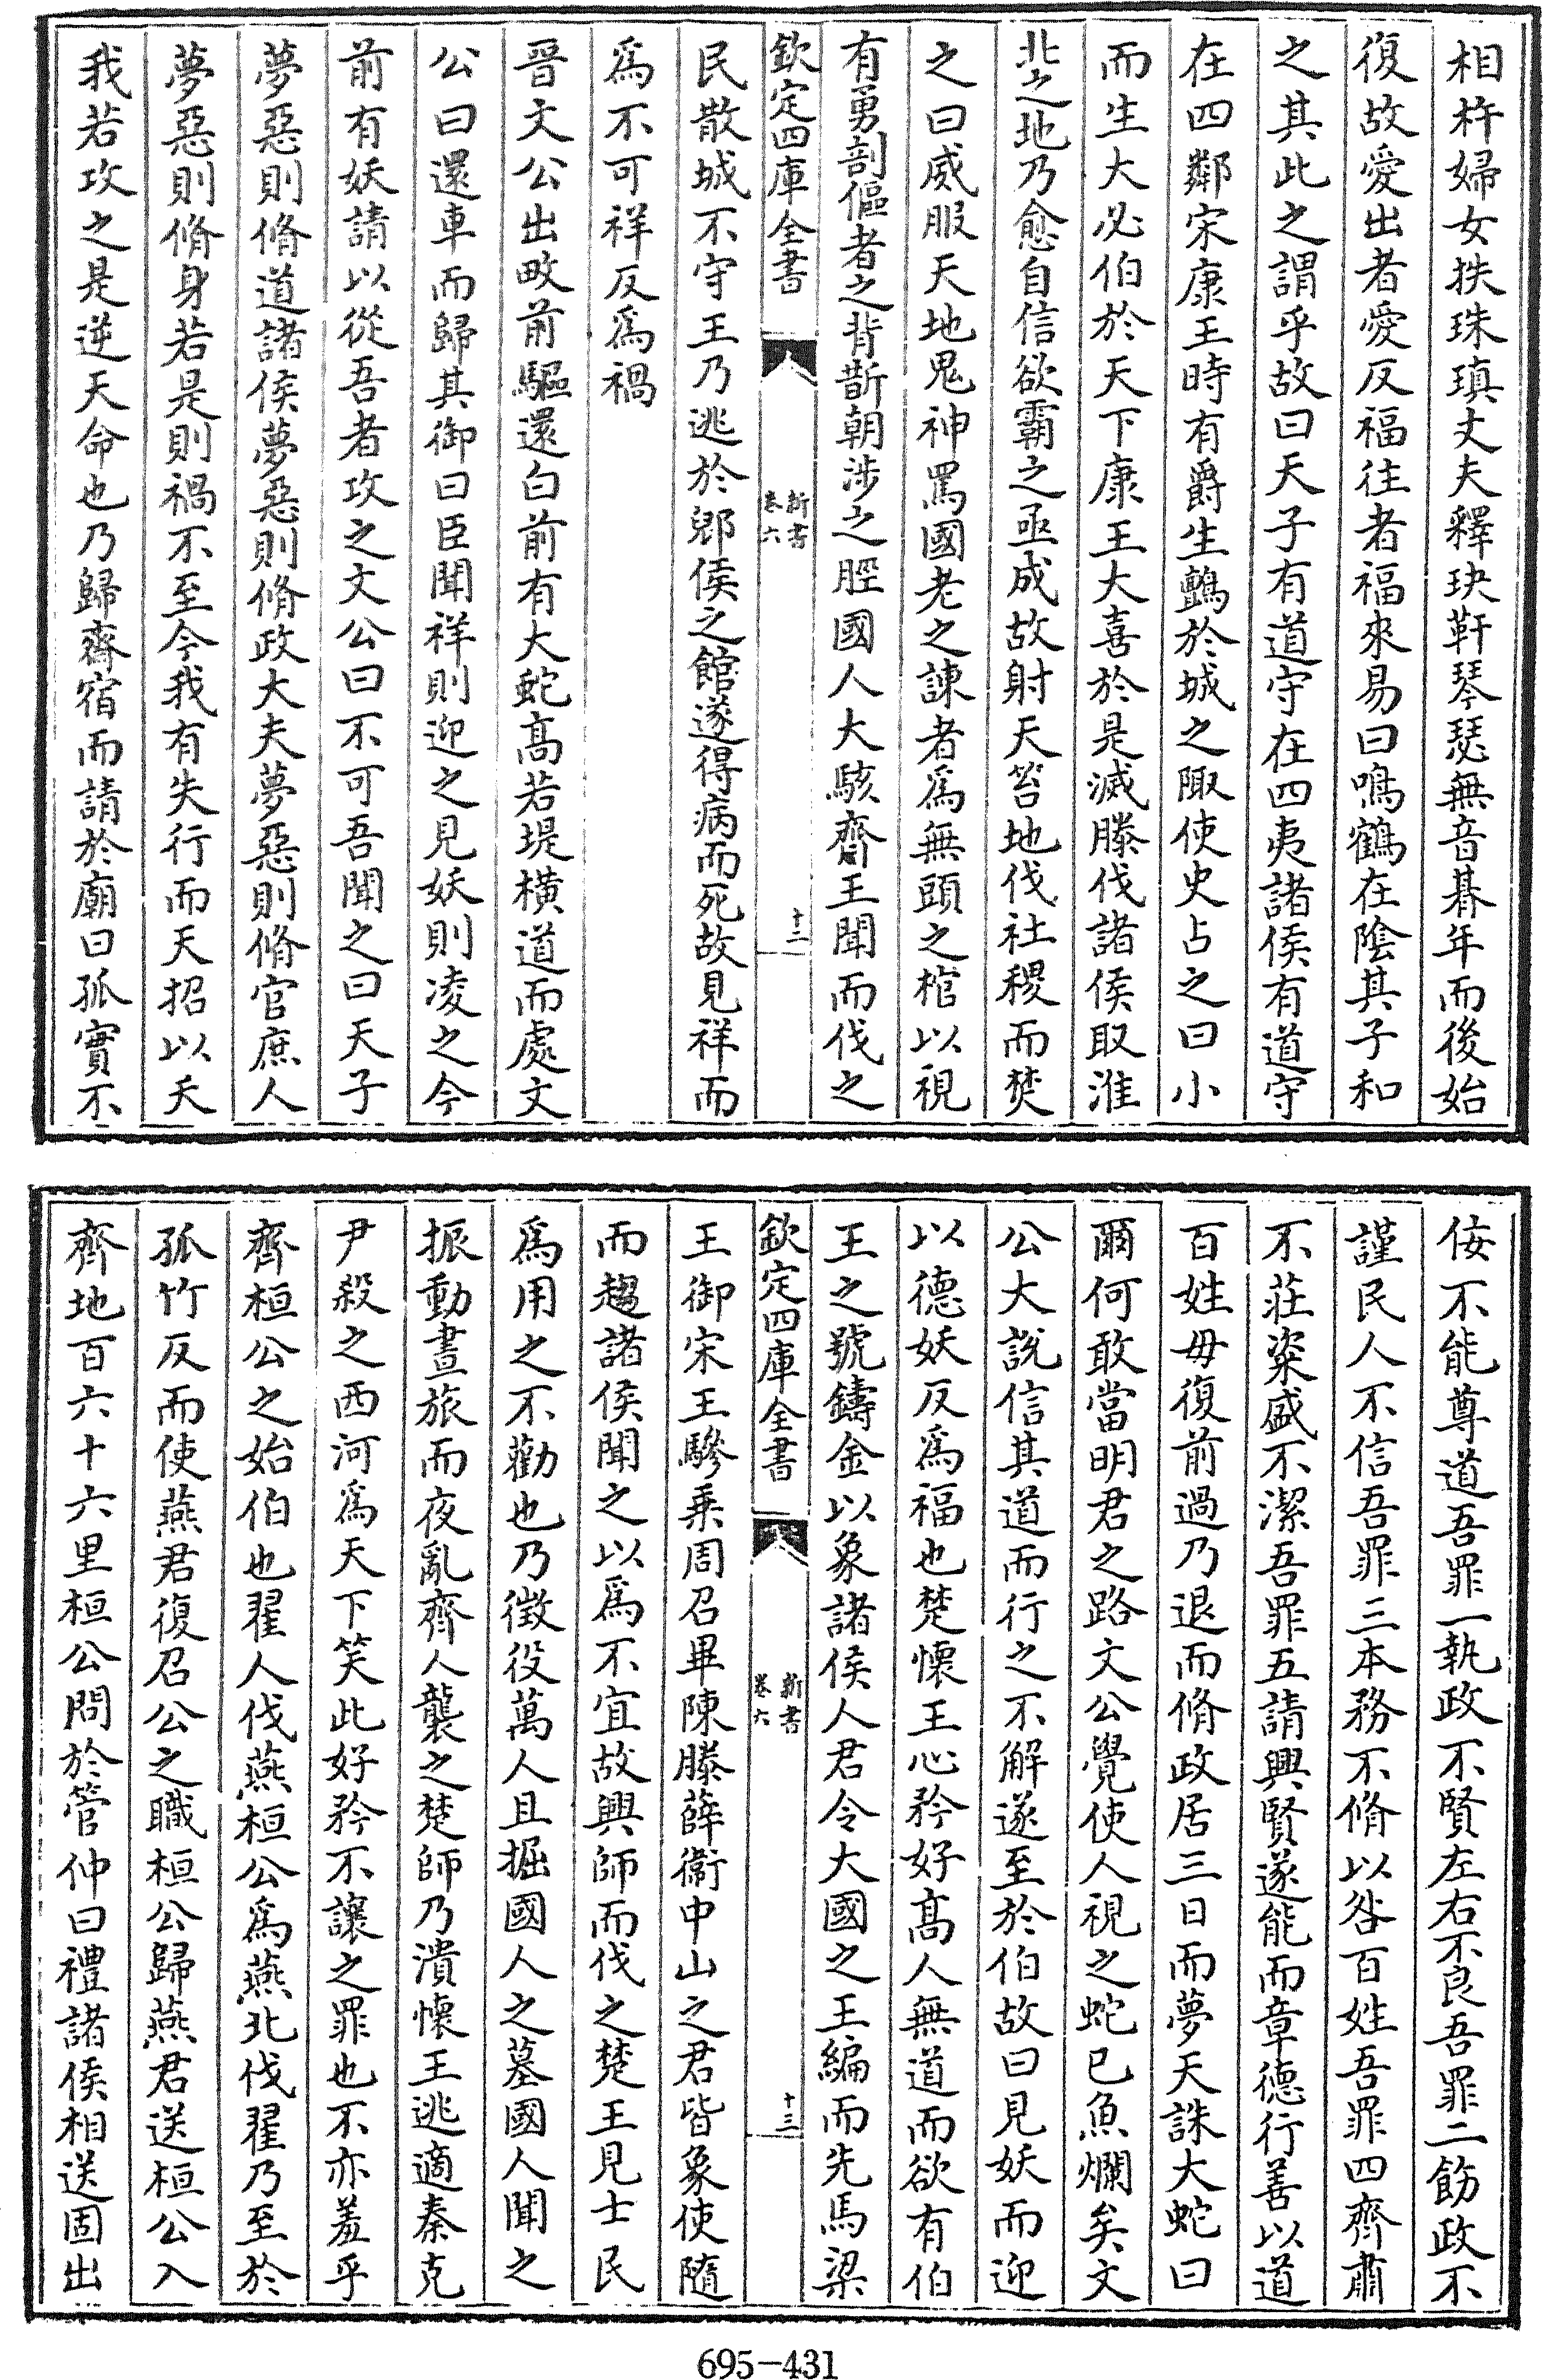 相杵婦女抶珠瑱丈夫釋玦靬琴瑟無音朞年而後始
復故愛出者愛反福往者福來易曰鳴鶴在陰其子和
之其此之謂乎故曰天子有道守在四夷諸侯有道守
在四鄰宋康王時有爵生鸇於城之陬使史占之曰小
而生大必伯於天下康王大喜於是滅滕伐諸侯取淮
北之地乃愈自信欲霸之亟成故射天笞地伐社稷而焚
之曰威服天地鬼神罵國老之諫者爲無頭之棺以視
有勇剖傴者之背斮朝涉之脛國人大駭齊王聞而伐之
欽定四庫全書
新書
卷六
十二
民散城不守王乃逃於郳侯之館遂得病而死故見祥而
爲不可祥反爲禍
晉文公出畋前驅還白前有大蛇髙若堤橫道而處文
公曰還車而歸其御曰臣聞祥則迎之見妖則凌之今
前有妖請以從吾者攻之文公曰不可吾聞之曰天子
夢惡則脩道諸侯夢惡則脩政大夫夢惡則脩官庶人
夢惡則脩身若是則禍不至今我有失行而天招以夭
我若攻之是逆天命也乃歸齋宿而請於廟曰孤實不
佞不能尊道吾罪一執政不賢左右不良吾罪二飭政不
謹民人不信吾罪三本務不脩以咎百姓吾罪四齊肅
不莊粢盛不潔吾罪五請興賢遂能而章德行善以道
百姓毋復前過乃退而脩政居三日而夢天誅大蛇曰
爾何敢當明君之路文公覺使人視之蛇已魚爛矣文
公大說信其道而行之不解遂至於伯故曰見妖而迎
以德妖反爲福也楚懷王心矜好髙人無道而欲有伯
王之號鑄金以象諸侯人君令大國之王編而先馬梁
欽定四庫全書
新書
卷六
十三
王御宋王驂乗周召畢陳滕薛衞中山之君皆象使隨
而趨諸侯聞之以爲不宜故興師而伐之楚王見士民
爲用之不勸也乃徴役萬人且掘國人之墓國人聞之
振動晝旅而夜亂齊人襲之楚師乃潰懷王逃適秦克
尹殺之西河爲天下笑此好矜不讓之罪也不亦羞乎
齊桓公之始伯也翟人伐燕桓公爲燕北伐翟乃至於
孤竹反而使燕君復召公之職桓公歸燕君送桓公入
齊地百六十六里桓公問於管仲曰禮諸侯相送固出
695-431